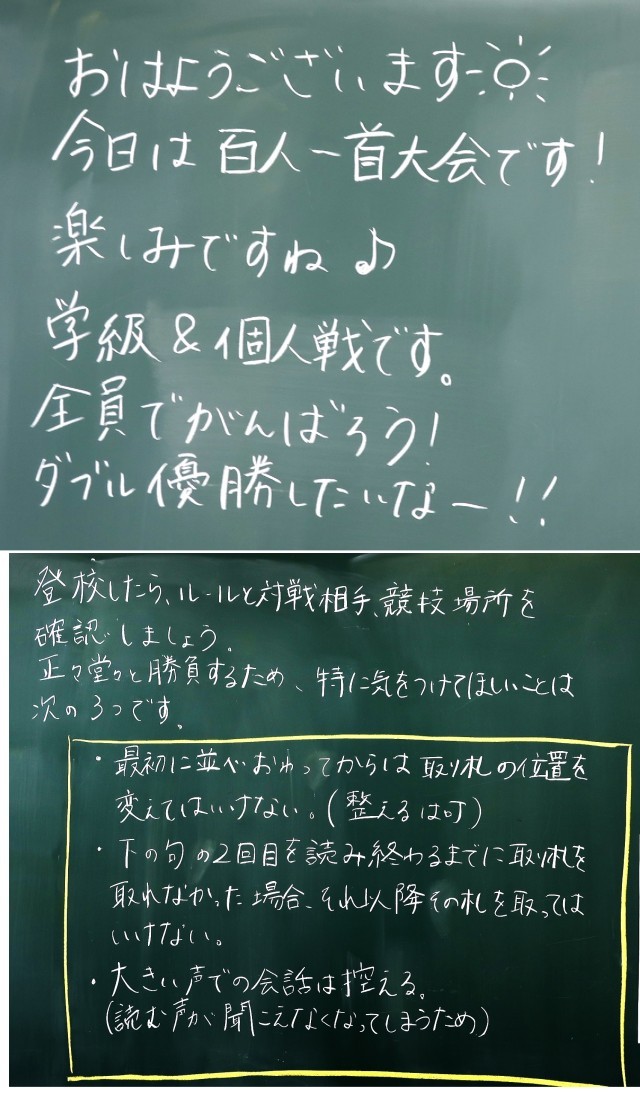 おはようございます
今日は百人一首大会です!
楽しみですね♪
学級&個人戦です。
全員でがんばろう!
ダブル優勝したいなー!!
登校したら、ルールと対戦相手、競技場所を
確認しましょう。
正々堂々と勝負するため、特に気をつけてほしいことは
次の3つです。
・最初に並べおわってからは取り札の位置を
変えてはいけない。(整えるは可)
・下の句の2回目を読み終わるまでに取り札を
取れなかった場合、それ以降その札を取っては
いけない。
・大きい声での会話は控える。
(読む声が聞こえなくなってしまうため)